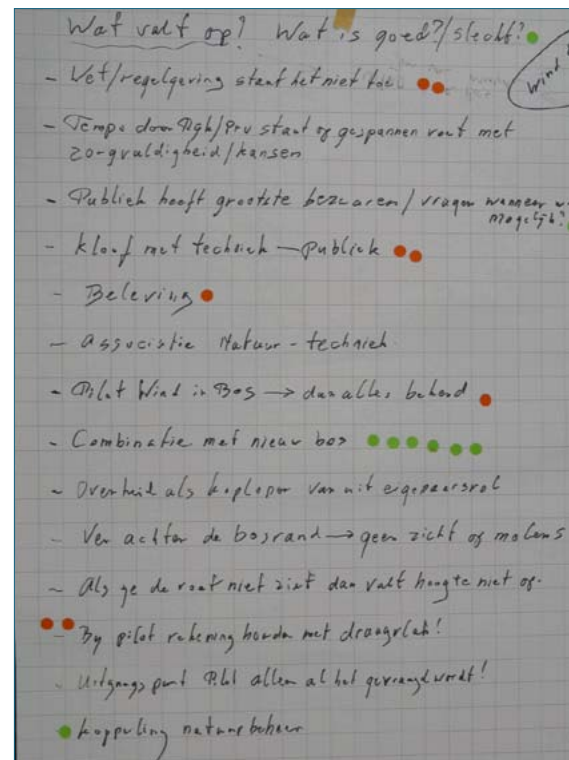 Wat valt op? Wat is goed?/slecht?
wind
- Wet/regelgeving staat het niet toe
- Tempo door Rgh/Prv staat op gespannen voet met
zorgvuldigheid/kansen
- Publiek heeft grootste bezwaren/vragen wanneer
mogelijk?
- kloof met techniek - publiek
- Beleving
- associatie Natuur - techniek
- Pilot Wind in Bos → dan alles behoud
- Combinatie met nieuw bos
- Overheid als koploper vanuit eigenaarsrol
- Ver achter de bosrand → geen zicht op molens
- Als je de voet niet ziet dan valt hoogte niet op.
- By pilot rekening houden met draagvlak!
- Uitgangspunt Pilot alleen als het gevraagd wordt!
koppeling natuurbeheer